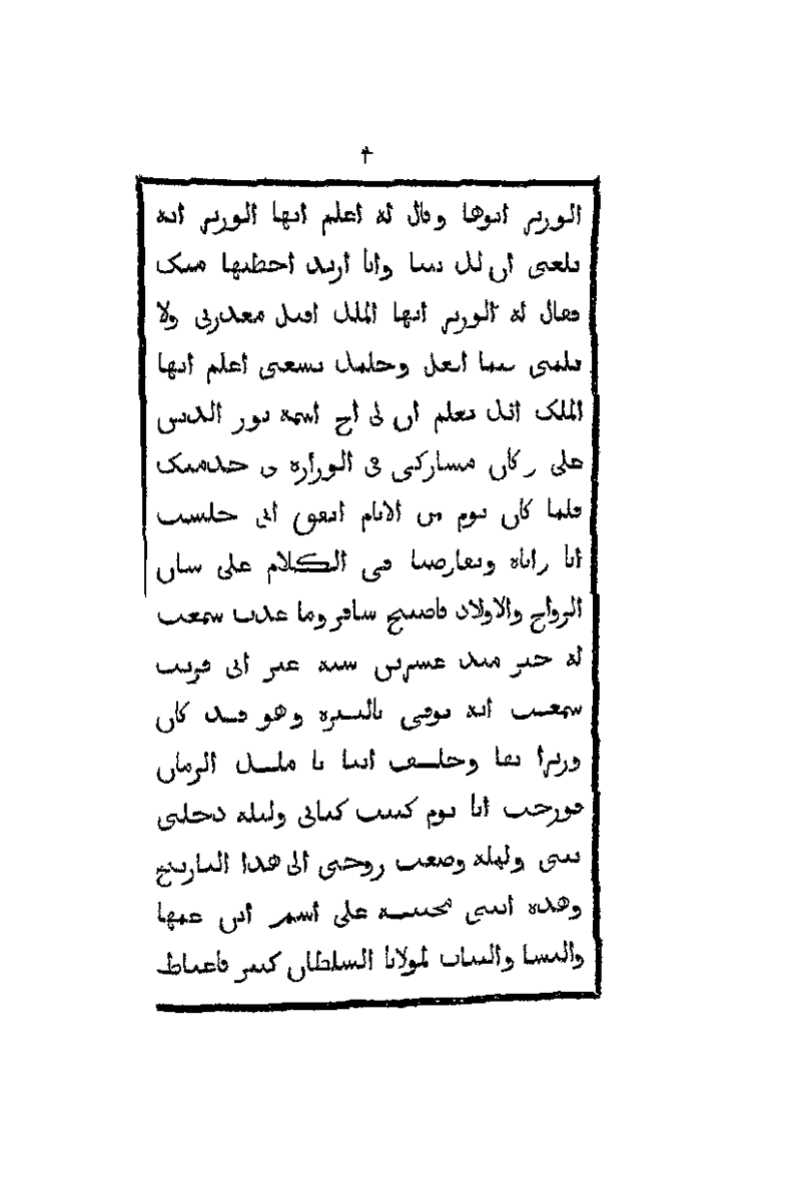 الوزير ابوها وقال له اعلم ايها الوزير انه
بلغني ان لك بنتا وانا اريد اخطبها منك
فقال له الوزير ايها الملك اقبل معذرتي ولا
تلمني فيما افعل وحلمك يسعني اعلم ايها
الملك انك تعلم ان لي اخ اسمه نور الدين
علي وكان مشاركي في الوزاره في خدمتك
فلما كان يوم من الايام اتفق اني جلست
انا واياه وتعارضنا في الكلام على شان
الزواج والاولاد فاصبح سافر وما عدت سمعت
له خبر منذ عشرين سنه غير اني قريب
سمعت انه توفي بالبصره وهو قد كان
وزيرا بها وخلف ابنا يا ملك الزمان
فورخت انا يوم كتبت كتابي وليله دخلتي
بنتي وليله وضعت زوجتي الى هذا التاريخ
وهذه ابنتي على اسم ابن عمها
والنسا والبنات لمولانا السلطان كثير فاغتاظ